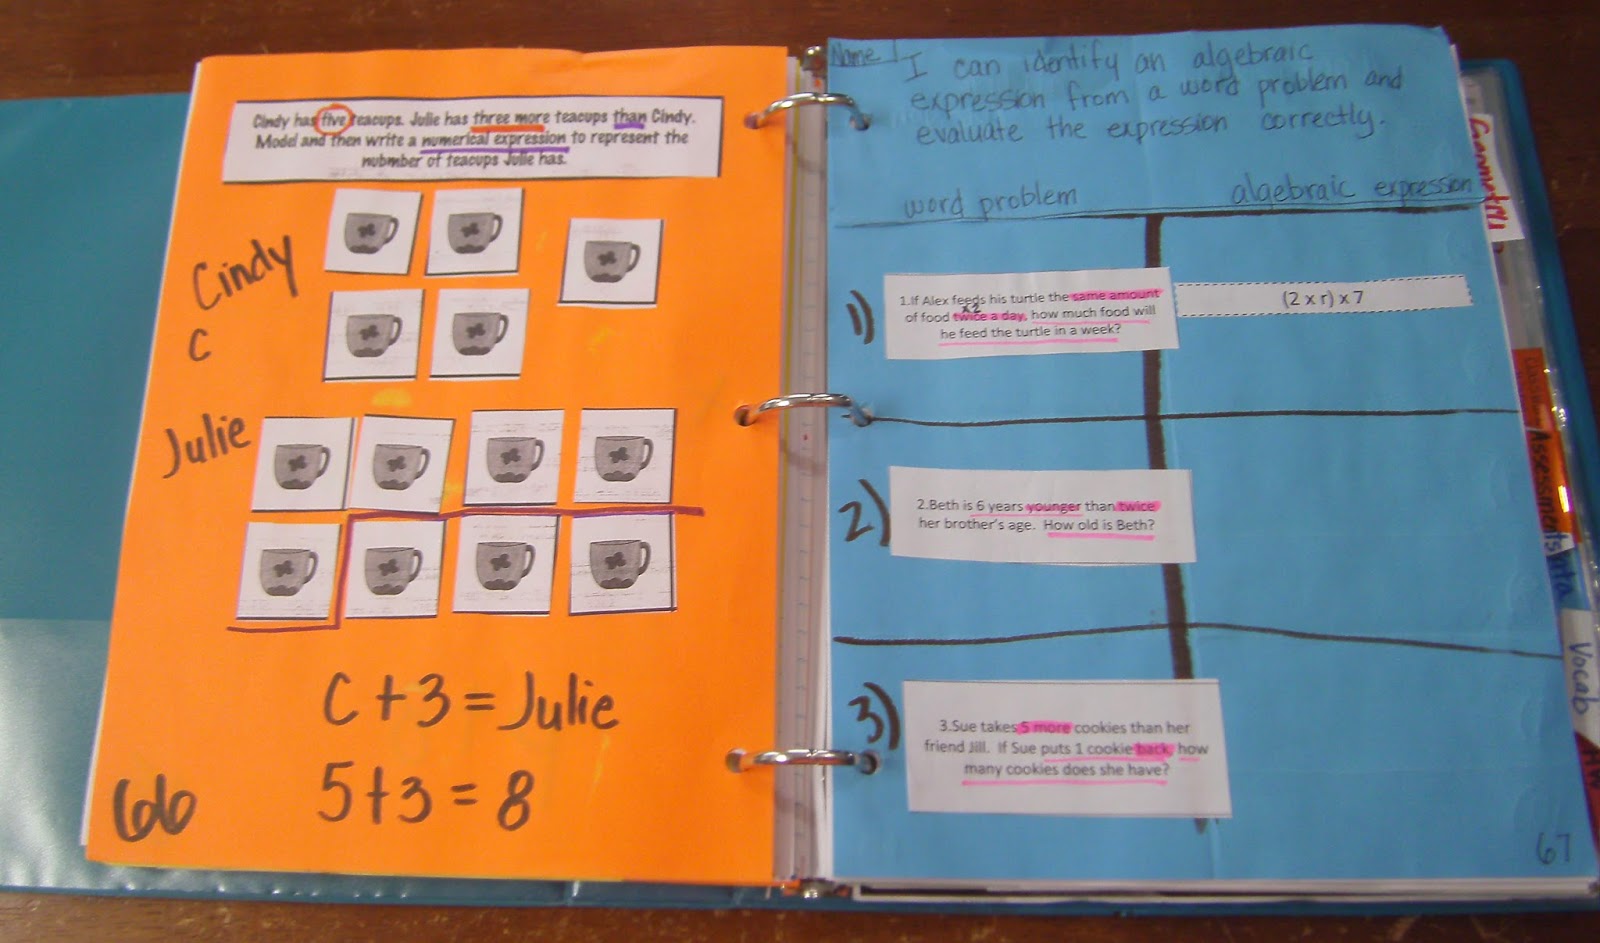 Cindy has five teacups. Julie has three more teacups than Cindy.
Model and then write a numerical expression to represent the
nubmber of teacups Julie has.
Cindy
C
Julie
C + 3 = Julie
5 + 3 = 8
66
Name
I can identify an algebraic
expression from a word problem and
evaluate the expression correctly.
word problem
algebraic expression
1)
1.If Alex feeds his turtle the same amount
x2
of food twice a day, how much food will
he feed the turtle in a week?
(2 x r) x 7
2)
2.Beth is 6 years younger than twice
her brother's age. How old is Beth?
3)
3.Sue takes 5 more cookies than her
friend Jill. If Sue puts 1 cookie back, how
many cookies does she have?
67
Geometry
Assessments
Data
Vocab